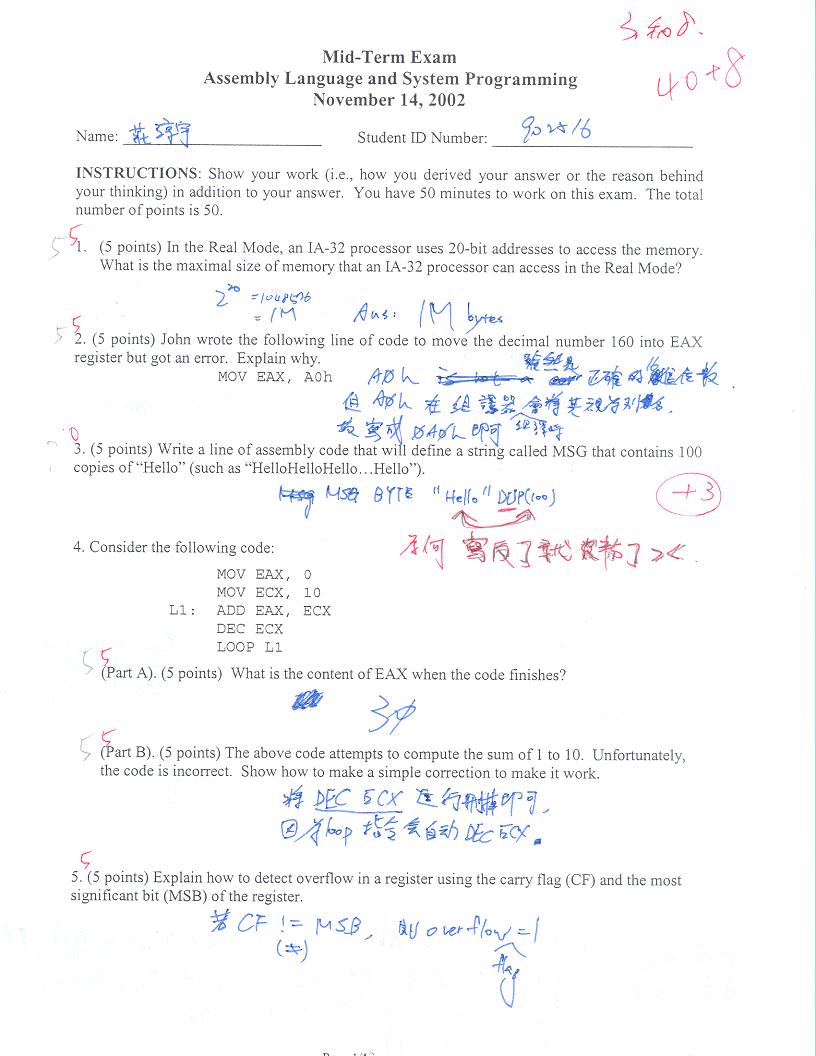 3和8.
40+8
Mid-Term Exam
Assembly Language and System Programming
November 14, 2002
Name: 莊淳宇 Student ID Number: 902516
INSTRUCTIONS: Show your work (i.e., how you derived your answer or the reason behind
your thinking) in addition to your answer. You have 50 minutes to work on this exam. The total
number of points is 50.
5 5
1. (5 points) In the Real Mode, an IA-32 processor uses 20-bit addresses to access the memory.
What is the maximal size of memory that an IA-32 processor can access in the Real Mode?
2^20 = 1048576
= 1M Ans: 1M bytes
5 5
2. (5 points) John wrote the following line of code to move the decimal number 160 into EAX
register but got an error. Explain why.
MOV EAX, A0h
A0h 雖然是正確的 進位數.
但 A0h 在組譯器 組譯時 會將其視為
故寫成 0A0h 即可
0
3. (5 points) Write a line of assembly code that will define a string called MSG that contains 100
copies of “Hello” (such as “HelloHelloHello…Hello”).
MSG BYTE "Hello" DUP(100)
+3
為何 寫反了就
4. Consider the following code:
MOV EAX, 0
MOV ECX, 10
L1: ADD EAX, ECX
DEC ECX
LOOP L1
5 5
(Part A). (5 points) What is the content of EAX when the code finishes?
30
5 5
(Part B). (5 points) The above code attempts to compute the sum of 1 to 10. Unfortunately,
the code is incorrect. Show how to make a simple correction to make it work.
將 DEC ECX 進行刪掉即可,
因為loop 指令會自動 DEC ECX.
5
5. (5 points) Explain how to detect overflow in a register using the carry flag (CF) and the most
significant bit (MSB) of the register.
若 CF != MSB, 則 overflow = 1
(≠)
flag